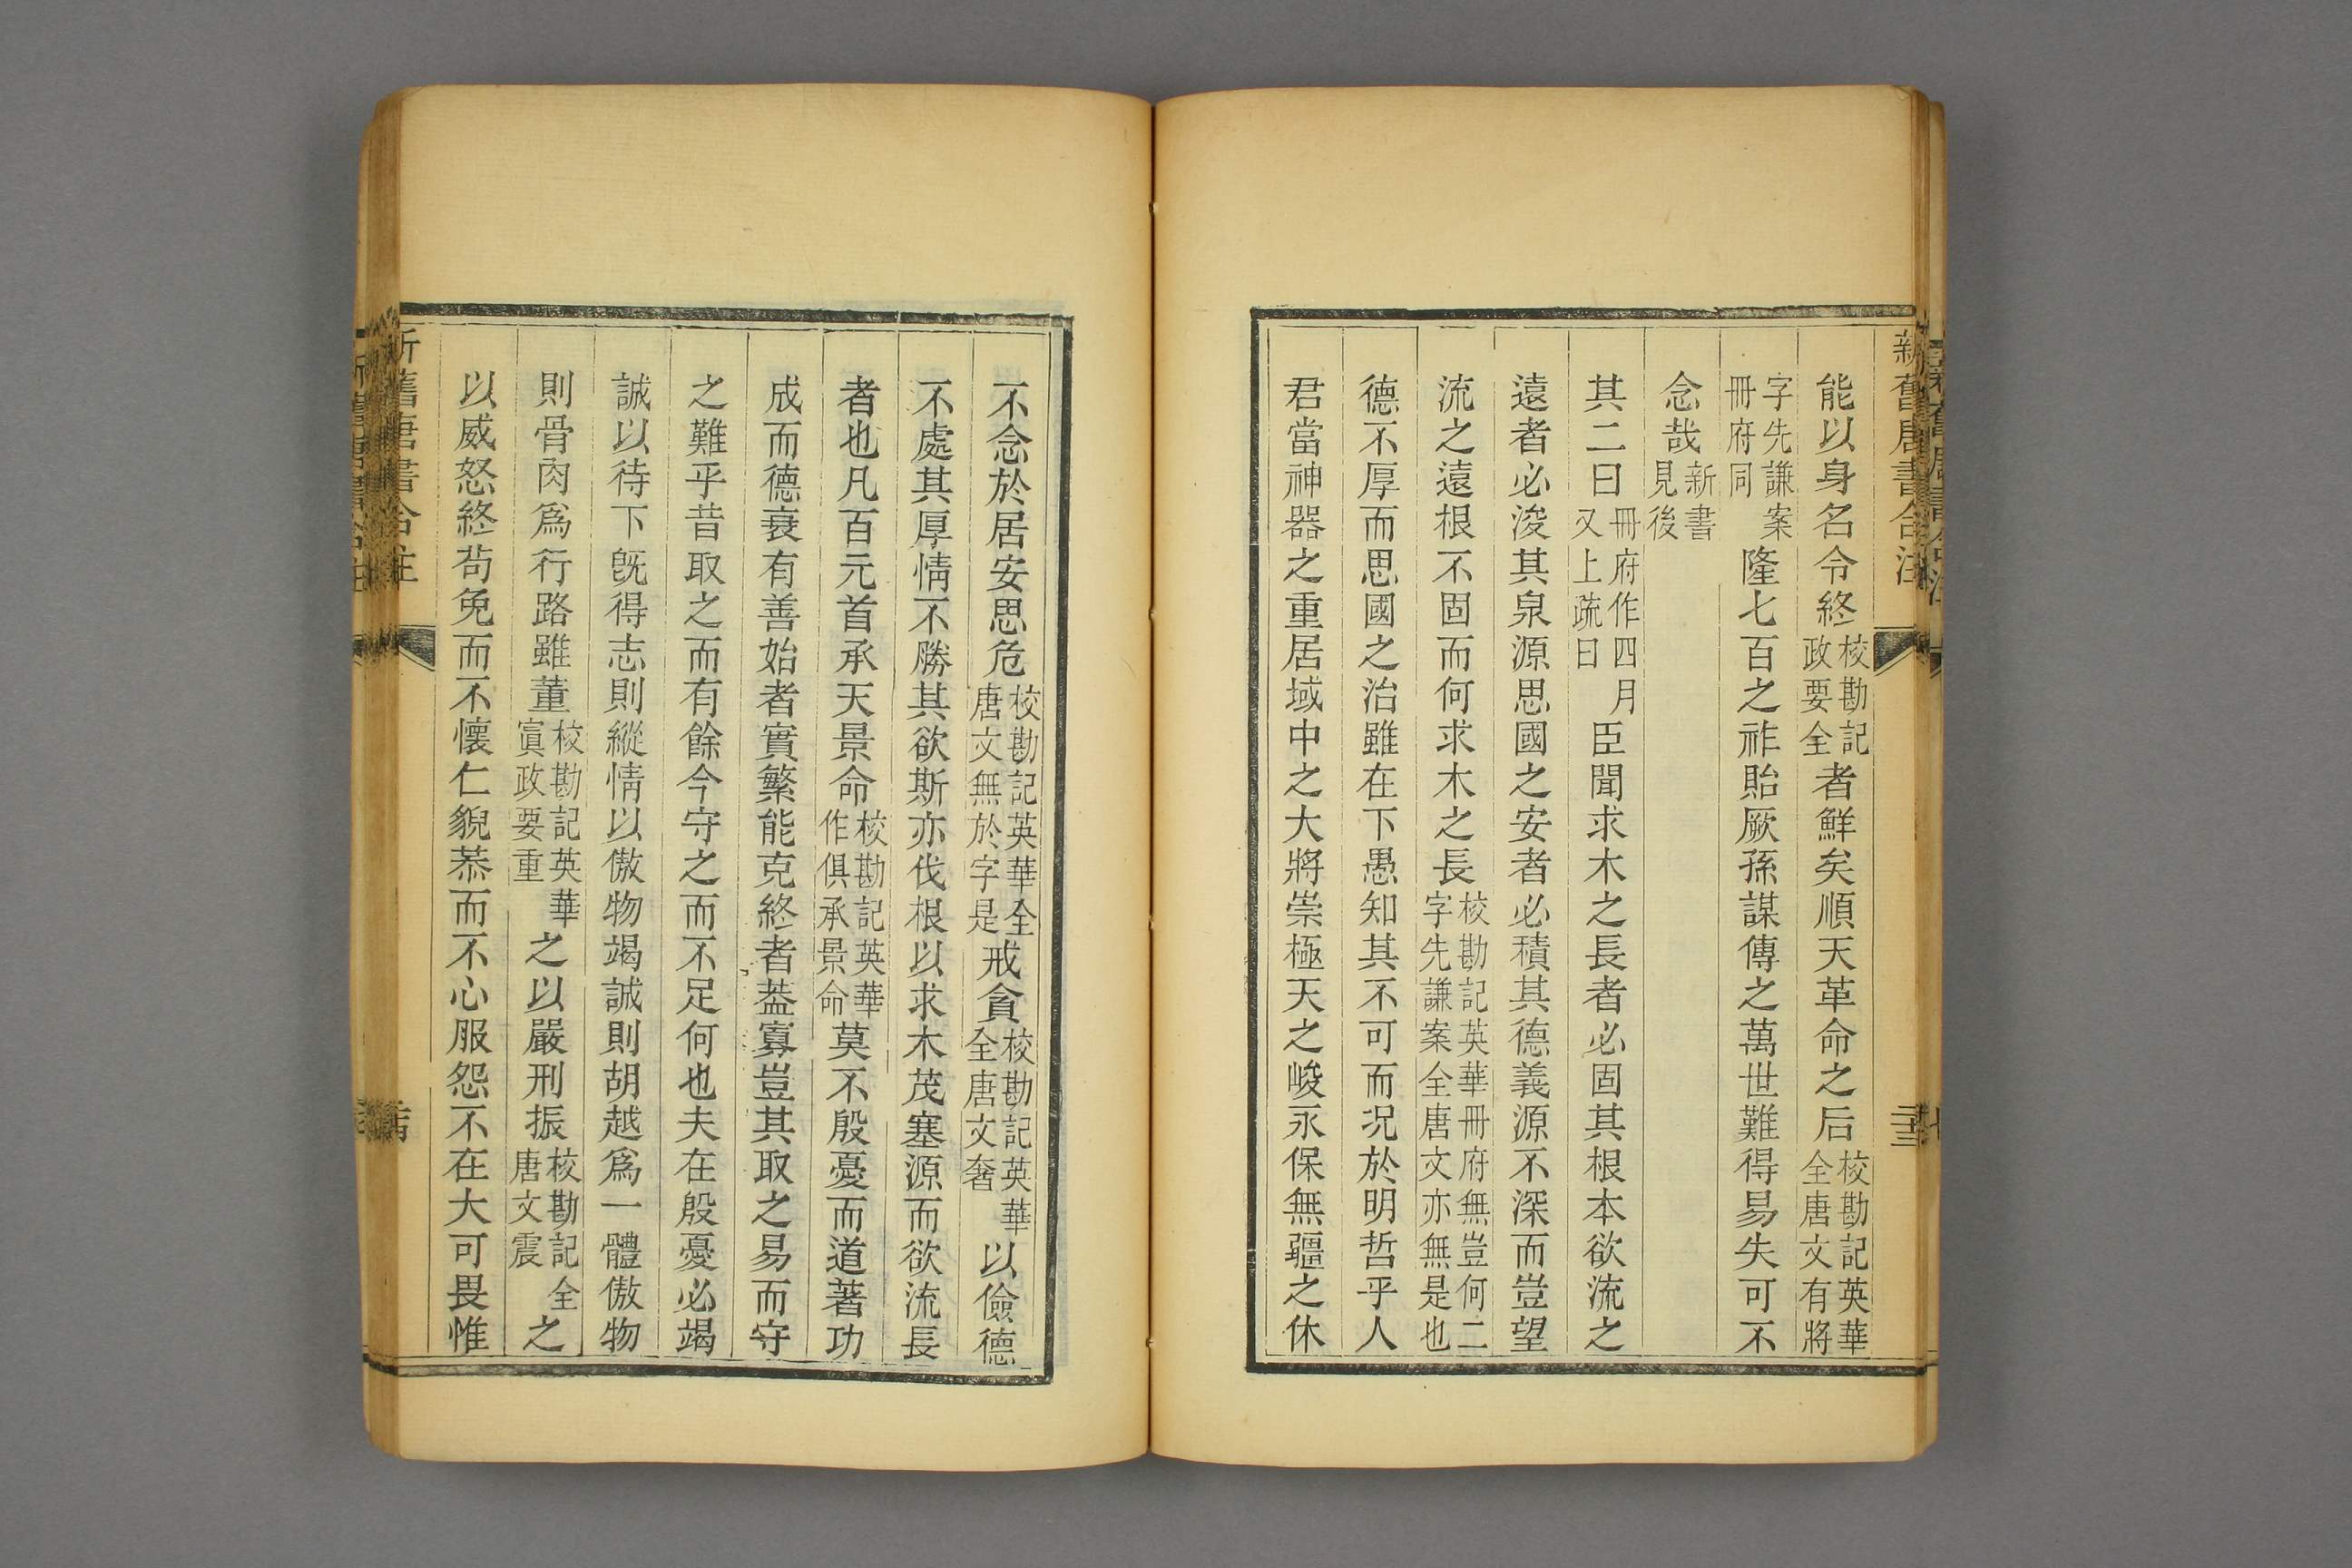 新舊唐書合注
能以身名令終校勘記政要全者鮮矣順天革命之后校勘記英華全唐文有將
字先謙案冊府同隆七百之祚貽厥孫謀傳之萬世難得易失可不
念哉新書見後
其二曰冊府作四月又上疏曰臣聞求木之長者必固其根本欲流之
遠者必浚其泉源思國之安者必積其德義源不深而豈望
流之遠根不固而何求木之長校勘記英華冊府無豈何二字先謙案全唐文亦無是也
德不厚而思國之治雖在下愚知其不可而况於明哲乎人
君當神器之重居域中之大將崇極天之峻永保無疆之休
不念於居安思危校勘記英華全唐文無於字是戒貪校勘記英華全唐文奢以儉德
不處其厚情不勝其欲斯亦伐根以求木茂塞源而欲流長
者也凡百元首承天景命校勘記英華作俱承景命莫不殷憂而道著功
成而德衰有善始者實繁能克終者葢寡豈其取之易而守
之難乎昔取之而有餘今守之而不足何也夫在殷憂必竭
誠以待下旣得志則縱情以傲物竭誠則胡越爲一體傲物
則骨肉爲行路雖董校勘記英華寘政要重之以嚴刑振校勘記全唐文震之
以威怒終茍免而不懷仁貌恭而不心服怨不在大可畏惟
新舊唐書合注